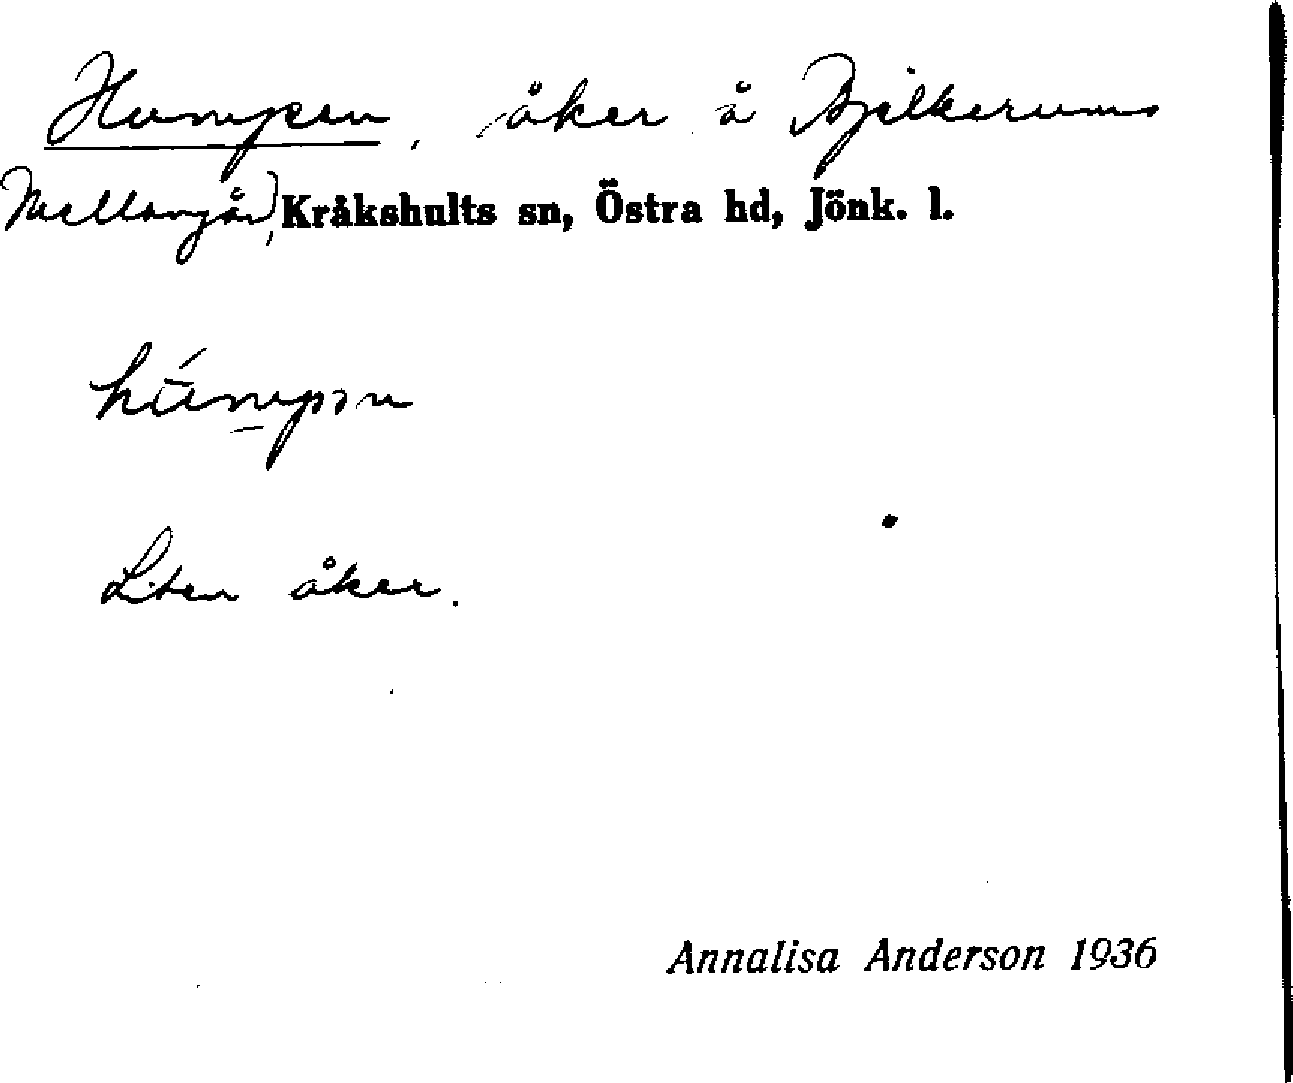 Humpen, åker å Bjälkerums
Mellangård, Kråkshults sn, Östra hd, Jönk. l.
Liten åker.
Annalisa Anderson 1936